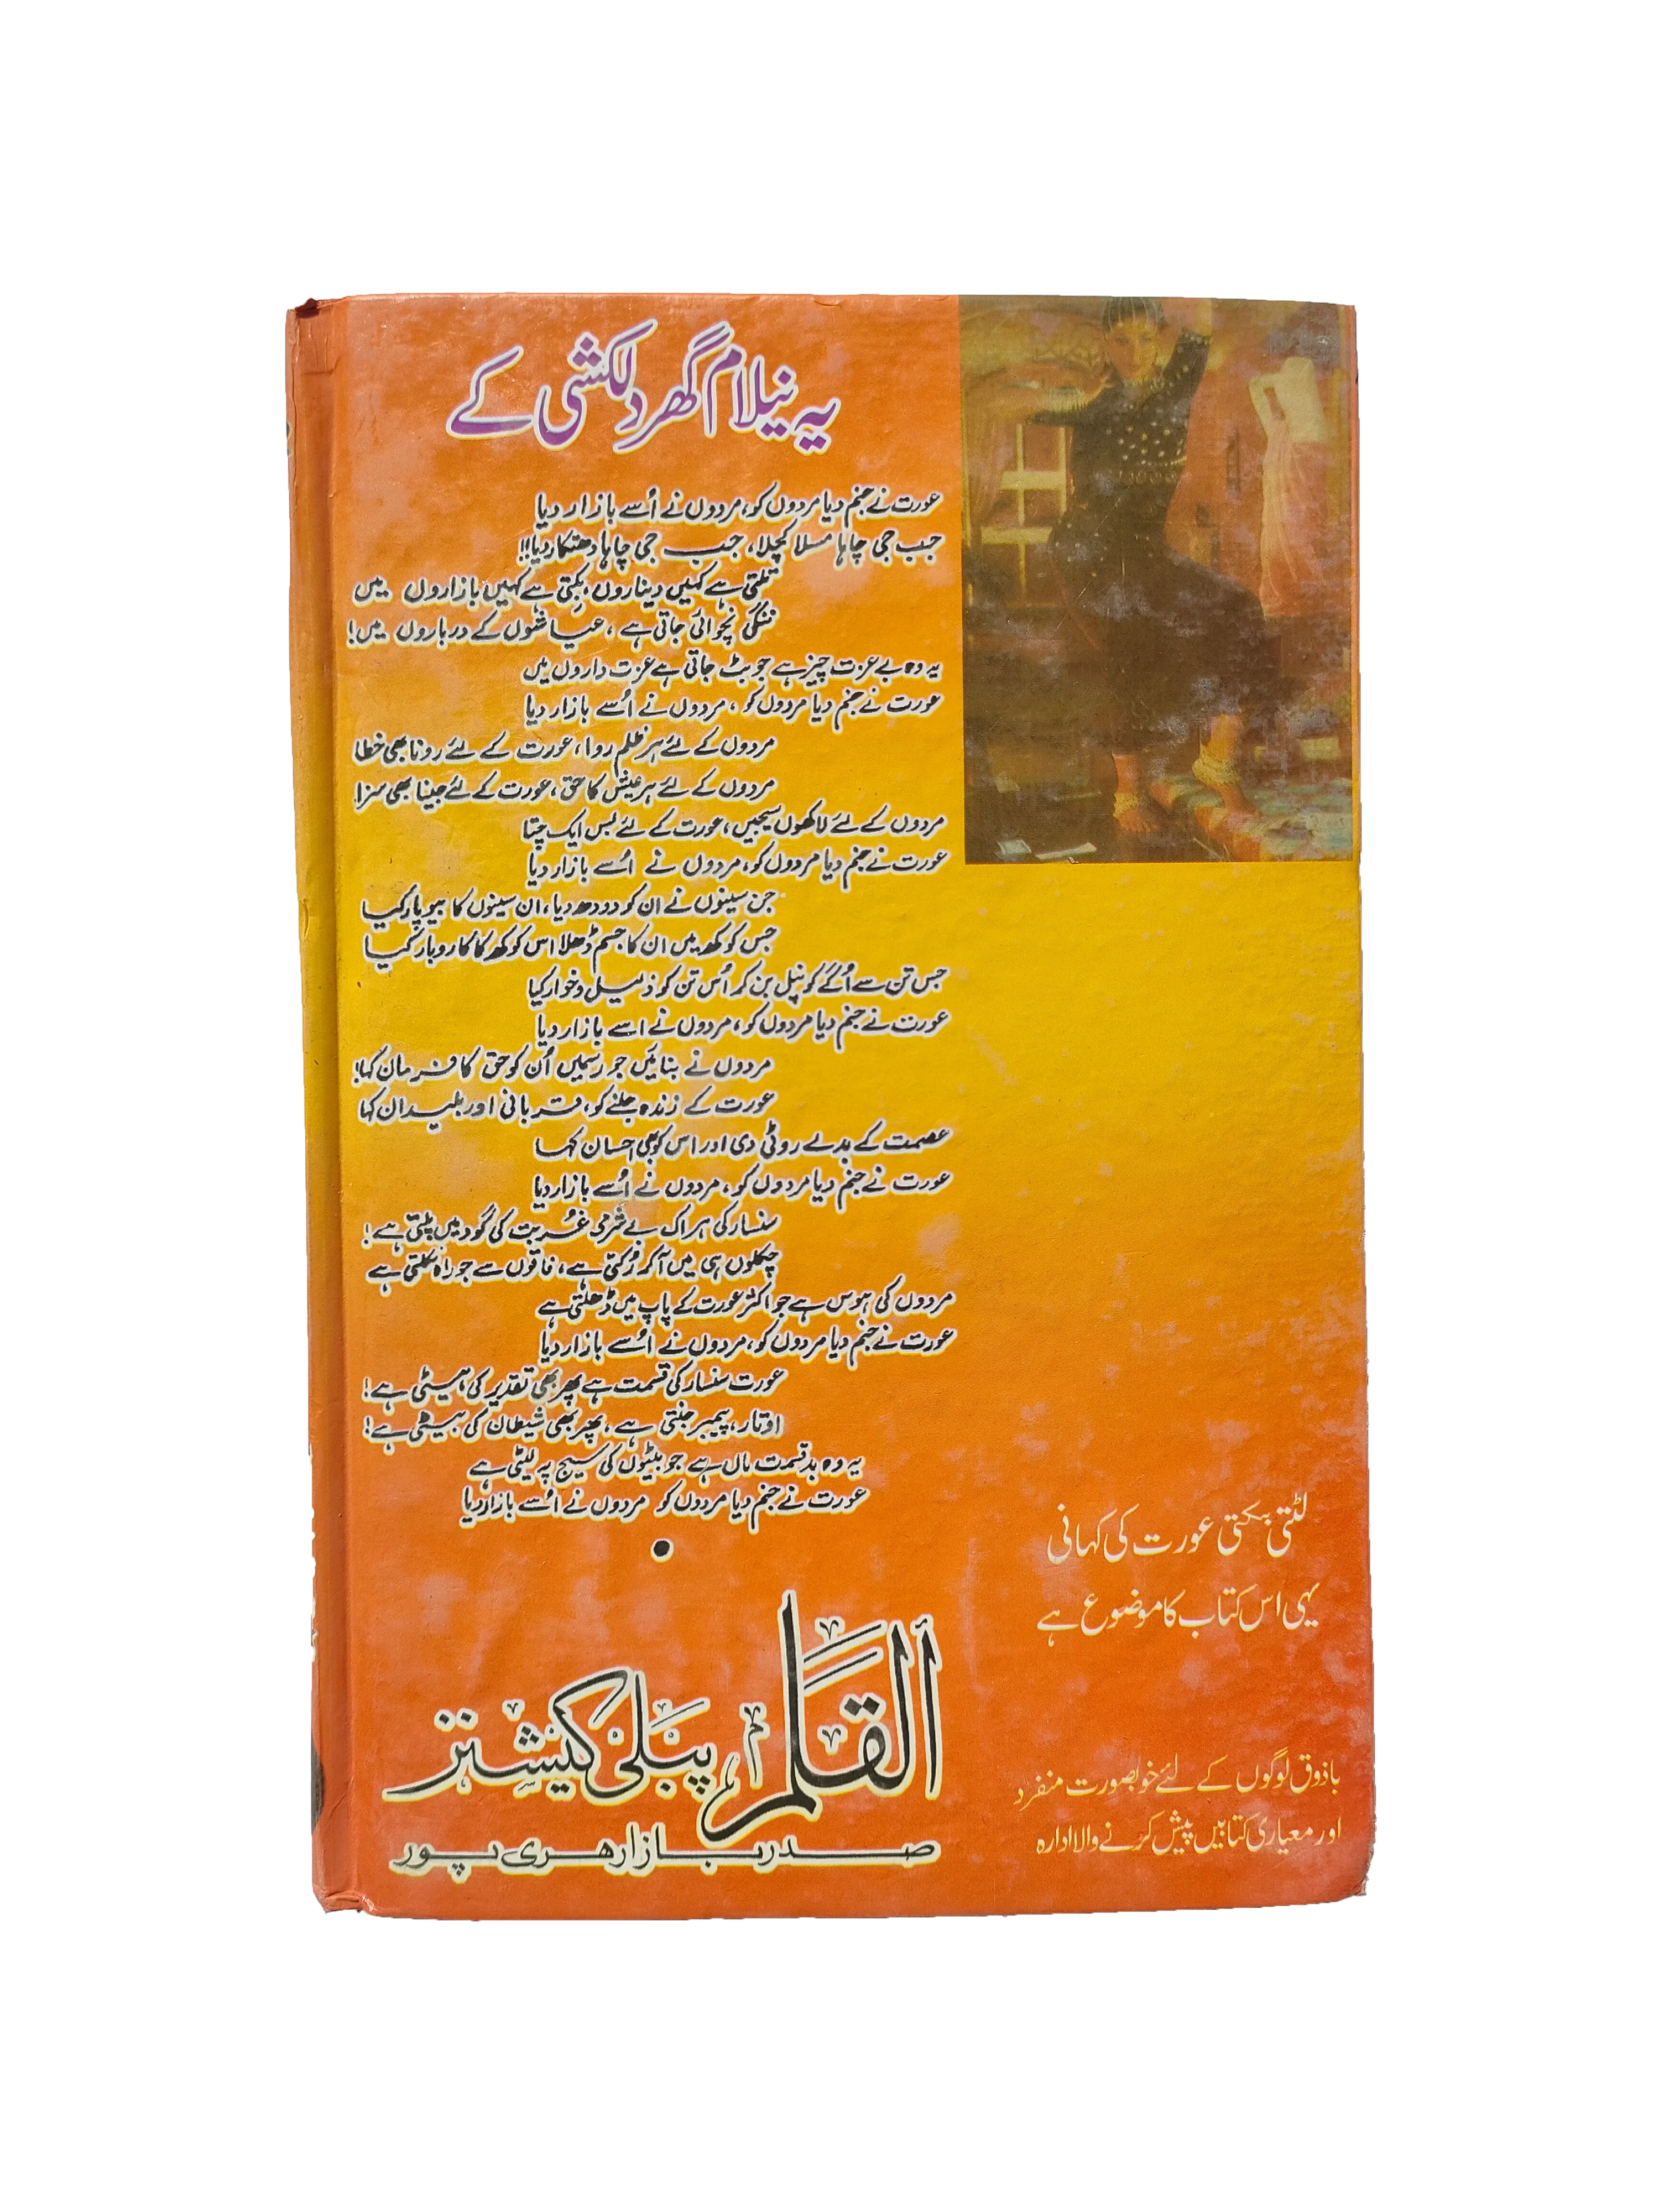 یہ نیلام گھر دلکشی کے
عورت نے جنم دیا مردوں کو، مردوں نے اُسے بازار دیا
جب جی چاہا مسلا کچلا، جب جی چاہا دھتکار دیا!!
تلتی ہے کہیں دیناروں، بکتی ہے کہیں بازاروں میں
ننگی نچوائی جاتی ہے، عیاشوں کے درباروں میں!
یہ وہ بے عزت چیز ہے جو بٹ جاتی ہے عزت داروں میں
عورت نے جنم دیا مردوں کو، مردوں نے اُسے بازار دیا
مردوں کے لئے ہر ظلم روا، عورت کے لئے رونا بھی خطا
مردوں کے لئے ہر عیش کا حق، عورت کے لئے جینا بھی سزا
مردوں کے لئے لاکھوں سیجیں، عورت کے لئے بس ایک چتا
عورت نے جنم دیا مردوں کو، مردوں نے اُسے بازار دیا
جن سینوں نے ان کو دودھ دیا، ان سینوں کا بیوپار کیا
جس کوکھ میں ان کا جسم ڈھلا اس کوکھ کا کاروبار کیا
جس تن سے اُگے کونپل بن کر اُس تن کو ذلیل و خوار کیا
عورت نے جنم دیا مردوں کو، مردوں نے اسے بازار دیا
مردوں نے بنائیں جو رسمیں اُن کو حق کا فرمان کہا!
عورت کے زندہ جلنے کو، قربانی اور بلیدان کہا
عصمت کے بدلے روٹی دی اور اس کو بھی احسان کہا
عورت نے جنم دیا مردوں کو، مردوں نے اُسے بازار دیا
سنسار کی ہر اک بے شرمی غُربت کی گود میں پلتی ہے!
چکلوں ہی میں آکر رُکتی ہے، فاقوں سے جو راہ نکلتی ہے
مردوں کی ہوس ہے جو اکثر عورت کے پاپ میں ڈھلتی ہے
عورت نے جنم دیا مردوں کو، مردوں نے اُسے بازار دیا
عورت سنسار کی قسمت ہے پھر بھی تقدیر کی ہیٹی ہے!
اوتار، پیمبر جنتی ہے، پھر بھی شیطان کی بیٹی ہے!
یہ وہ بدقسمت ماں ہے جو بیٹوں کی سیج پر لیٹی ہے
عورت نے جنم دیا مردوں کو مردوں نے اُسے بازار دیا
لٹتی بکتی عورت کی کہانی
یہی اس کتاب کا موضوع ہے
القلم پبلی کیشنز
صدر بازار ہری پور
باذوق لوگوں کے لئے خوبصورت منفرد
اور معیاری کتابیں پیش کرنے والا ادارہ